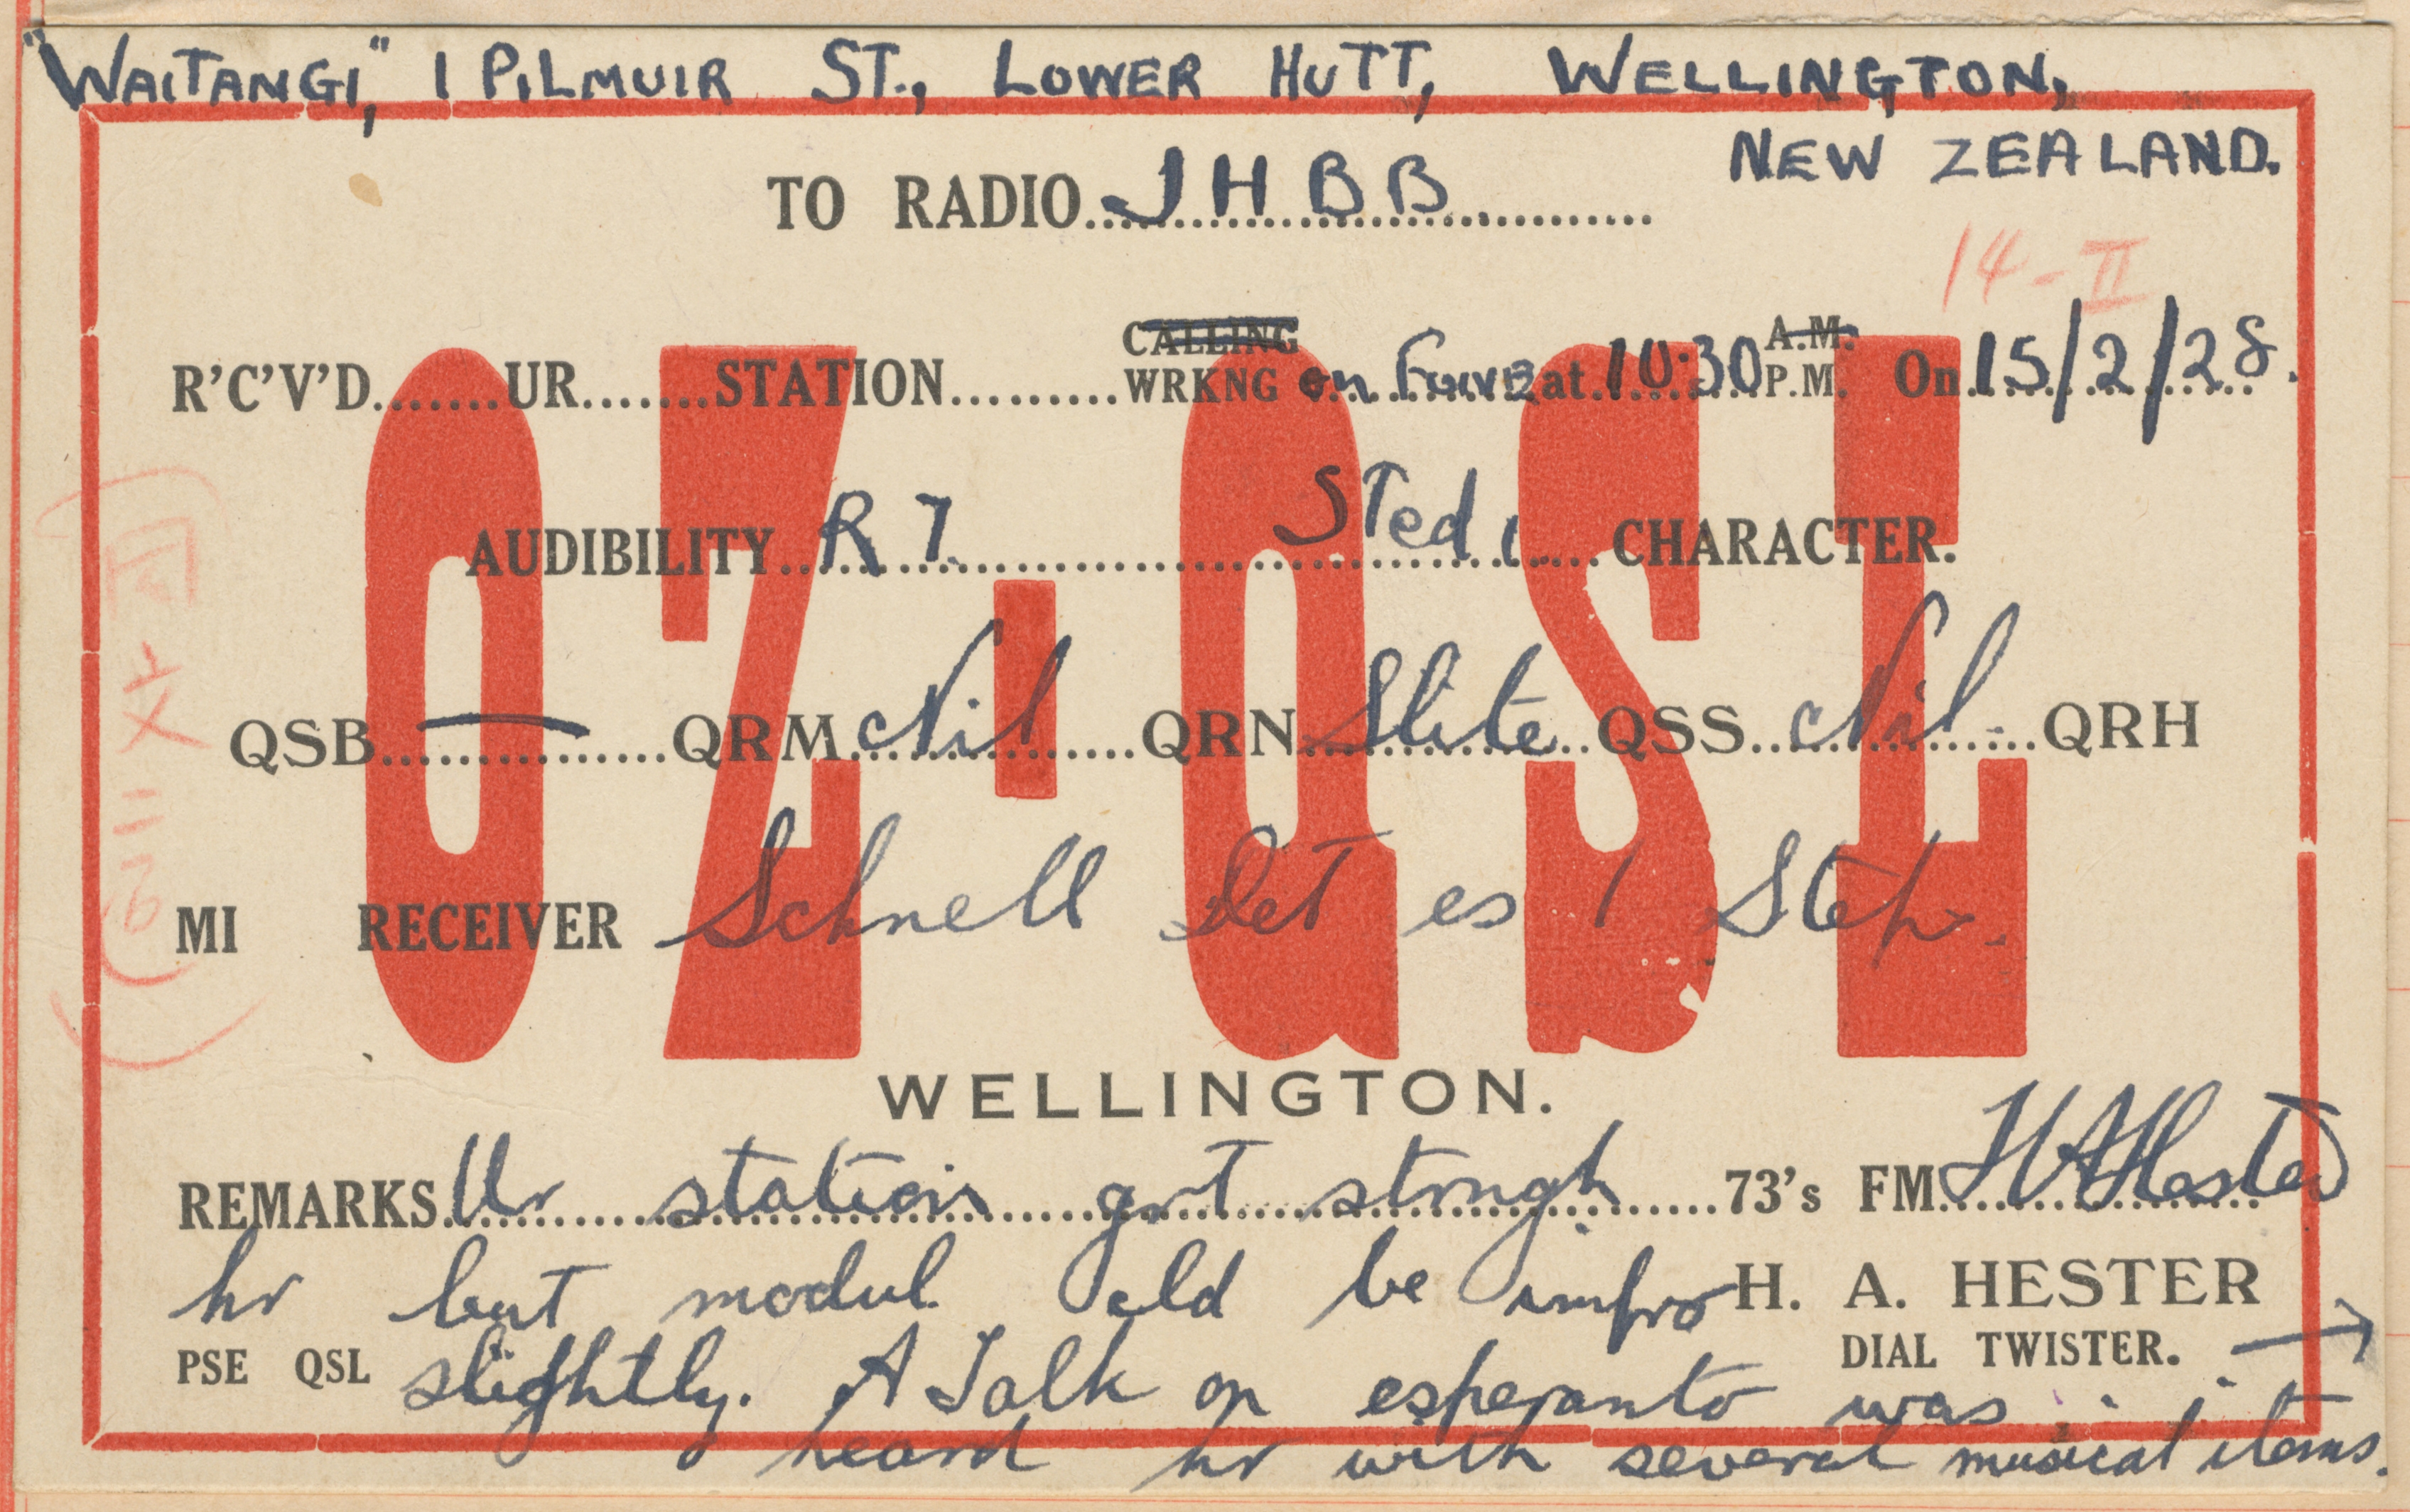 "WAITANGI," 1 PILMUIR ST., LOWER HUTT, WELLINGTON,
NEW ZEALAND.
TO RADIO JHBB
14-II
R'C'V'D.......UR.......STATION.........CALLING WRKNG on at 10.30 A.M. P.M. On 15/2/28.
AUDIBILITY R 7 STedi CHARACTER.
QSB — QRM Nil QRN Slite QSS Nil QRH
OZ·QSL
MI RECEIVER Schnell Det es 1 Step.
WELLINGTON.
REMARKS Ur station gvt strngh 73's FM HAHester
hr but modul cld be impro H. A. HESTER
DIAL TWISTER. →
PSE QSL slightly. A Talk on esperanto was
heard hr with several musical items.